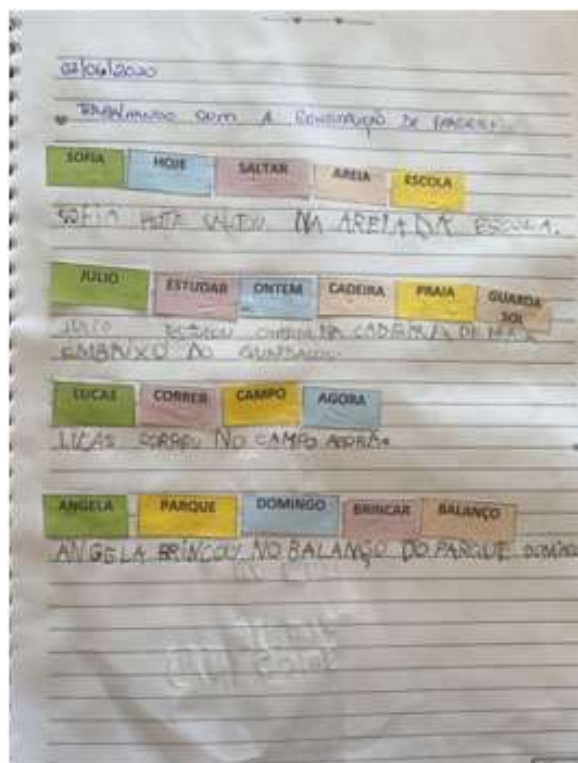 02/06/2020
TRABALHANDO COM A CONSTRUÇÃO DE FRASES.
SOFIA HOJE SALTAR AREIA ESCOLA
SOFIA HOJE SALTOU NA AREIA DA ESCOLA.
JULIO ESTUDAR ONTEM CADEIRA PRAIA GUARDA SOL
JULIO ONTEM NA CADEIRA DE
EMBAIXO DO
LUCAS CORRER CAMPO AGORA
LUCAS CORREU NO CAMPO AGORA.
ANGELA PARQUE DOMINGO BRINCAR BALANÇO
ANGELA BRINCOU NO BALANÇO DO PARQUE